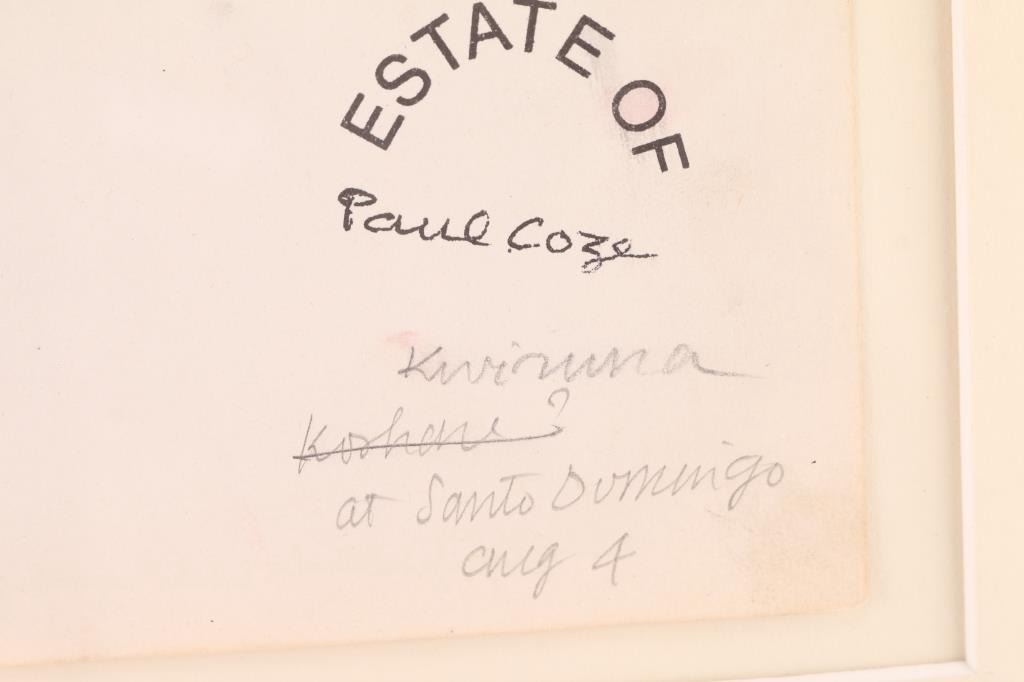 ESTATE OF
Paul Coze
Kwiruma
Koshare?
at Santo Domingo
aug 4